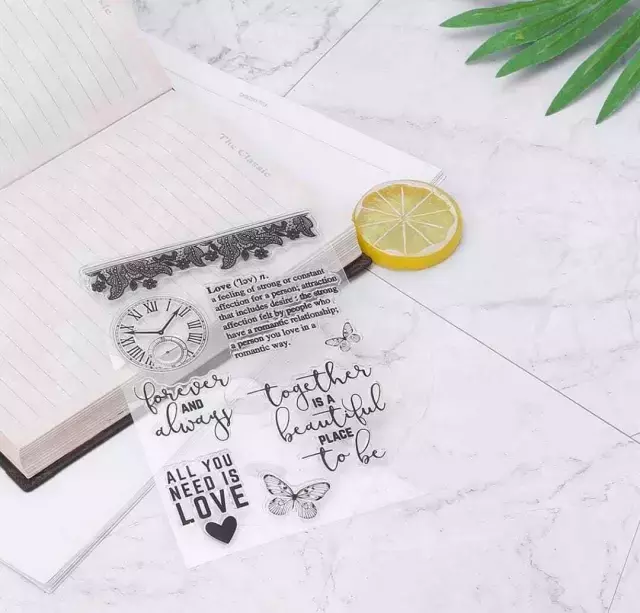 The Classic
Love ('lʌv) n.
a feeling of strong or constant
affection for a person; attraction
that includes desire - the strong
affection felt by people who
have a romantic relationship;
a person you love in a
romantic way.
forever
AND
always
together
IS A
beautiful
PLACE
to be
ALL YOU
NEED IS
LOVE